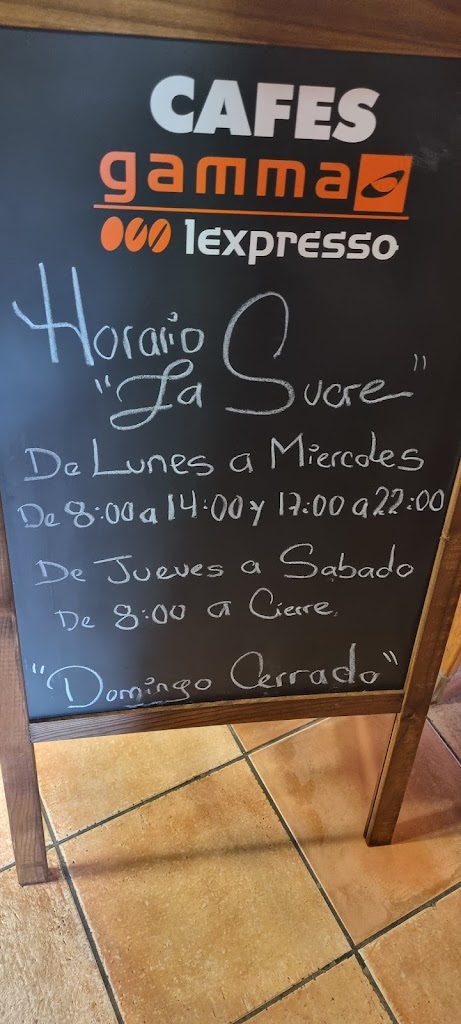 CAFES
gamma
lexpresso
Horario
"La Sucre"
De Lunes a Miercoles
De 8:00 a 14:00 y 17:00 a 22:00
De Jueves a Sabado
De 8:00 a Cierre.
"Domingo Cerrado"